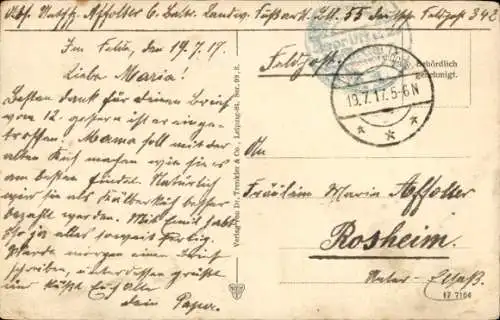 Abs. Wachtm. Affolter 6. Batr. Landw. Fußart. Btl. 55 deutsche Feldpost 342
Im Felde, den 19.7.17.
Liebe Maria!
Besten Dank für deinen Brief
vom 12. gestern ist er einge-
troffen. Mama soll mit der
alten Kuh machen wie sie es
am besten findet. Natürlich
wird sie als Kälberkuh besser
bezahlt werden. Mit Emil habt
Ihr ja alles soweit fertig.
Werde morgen einen Brief
schreiben, unterdessen grüßt
und küßt Euch alle
dein Papa.
Feldpost.
Behördlich
genehmigt.
19.7.17. 5-6 N
An
Fräulein Maria Affolter
Rosheim.
Unter-Elsaß
Verlag von Dr. Trenkler & Co., Leipzig-St. Ber. 99, 8.
17 7164